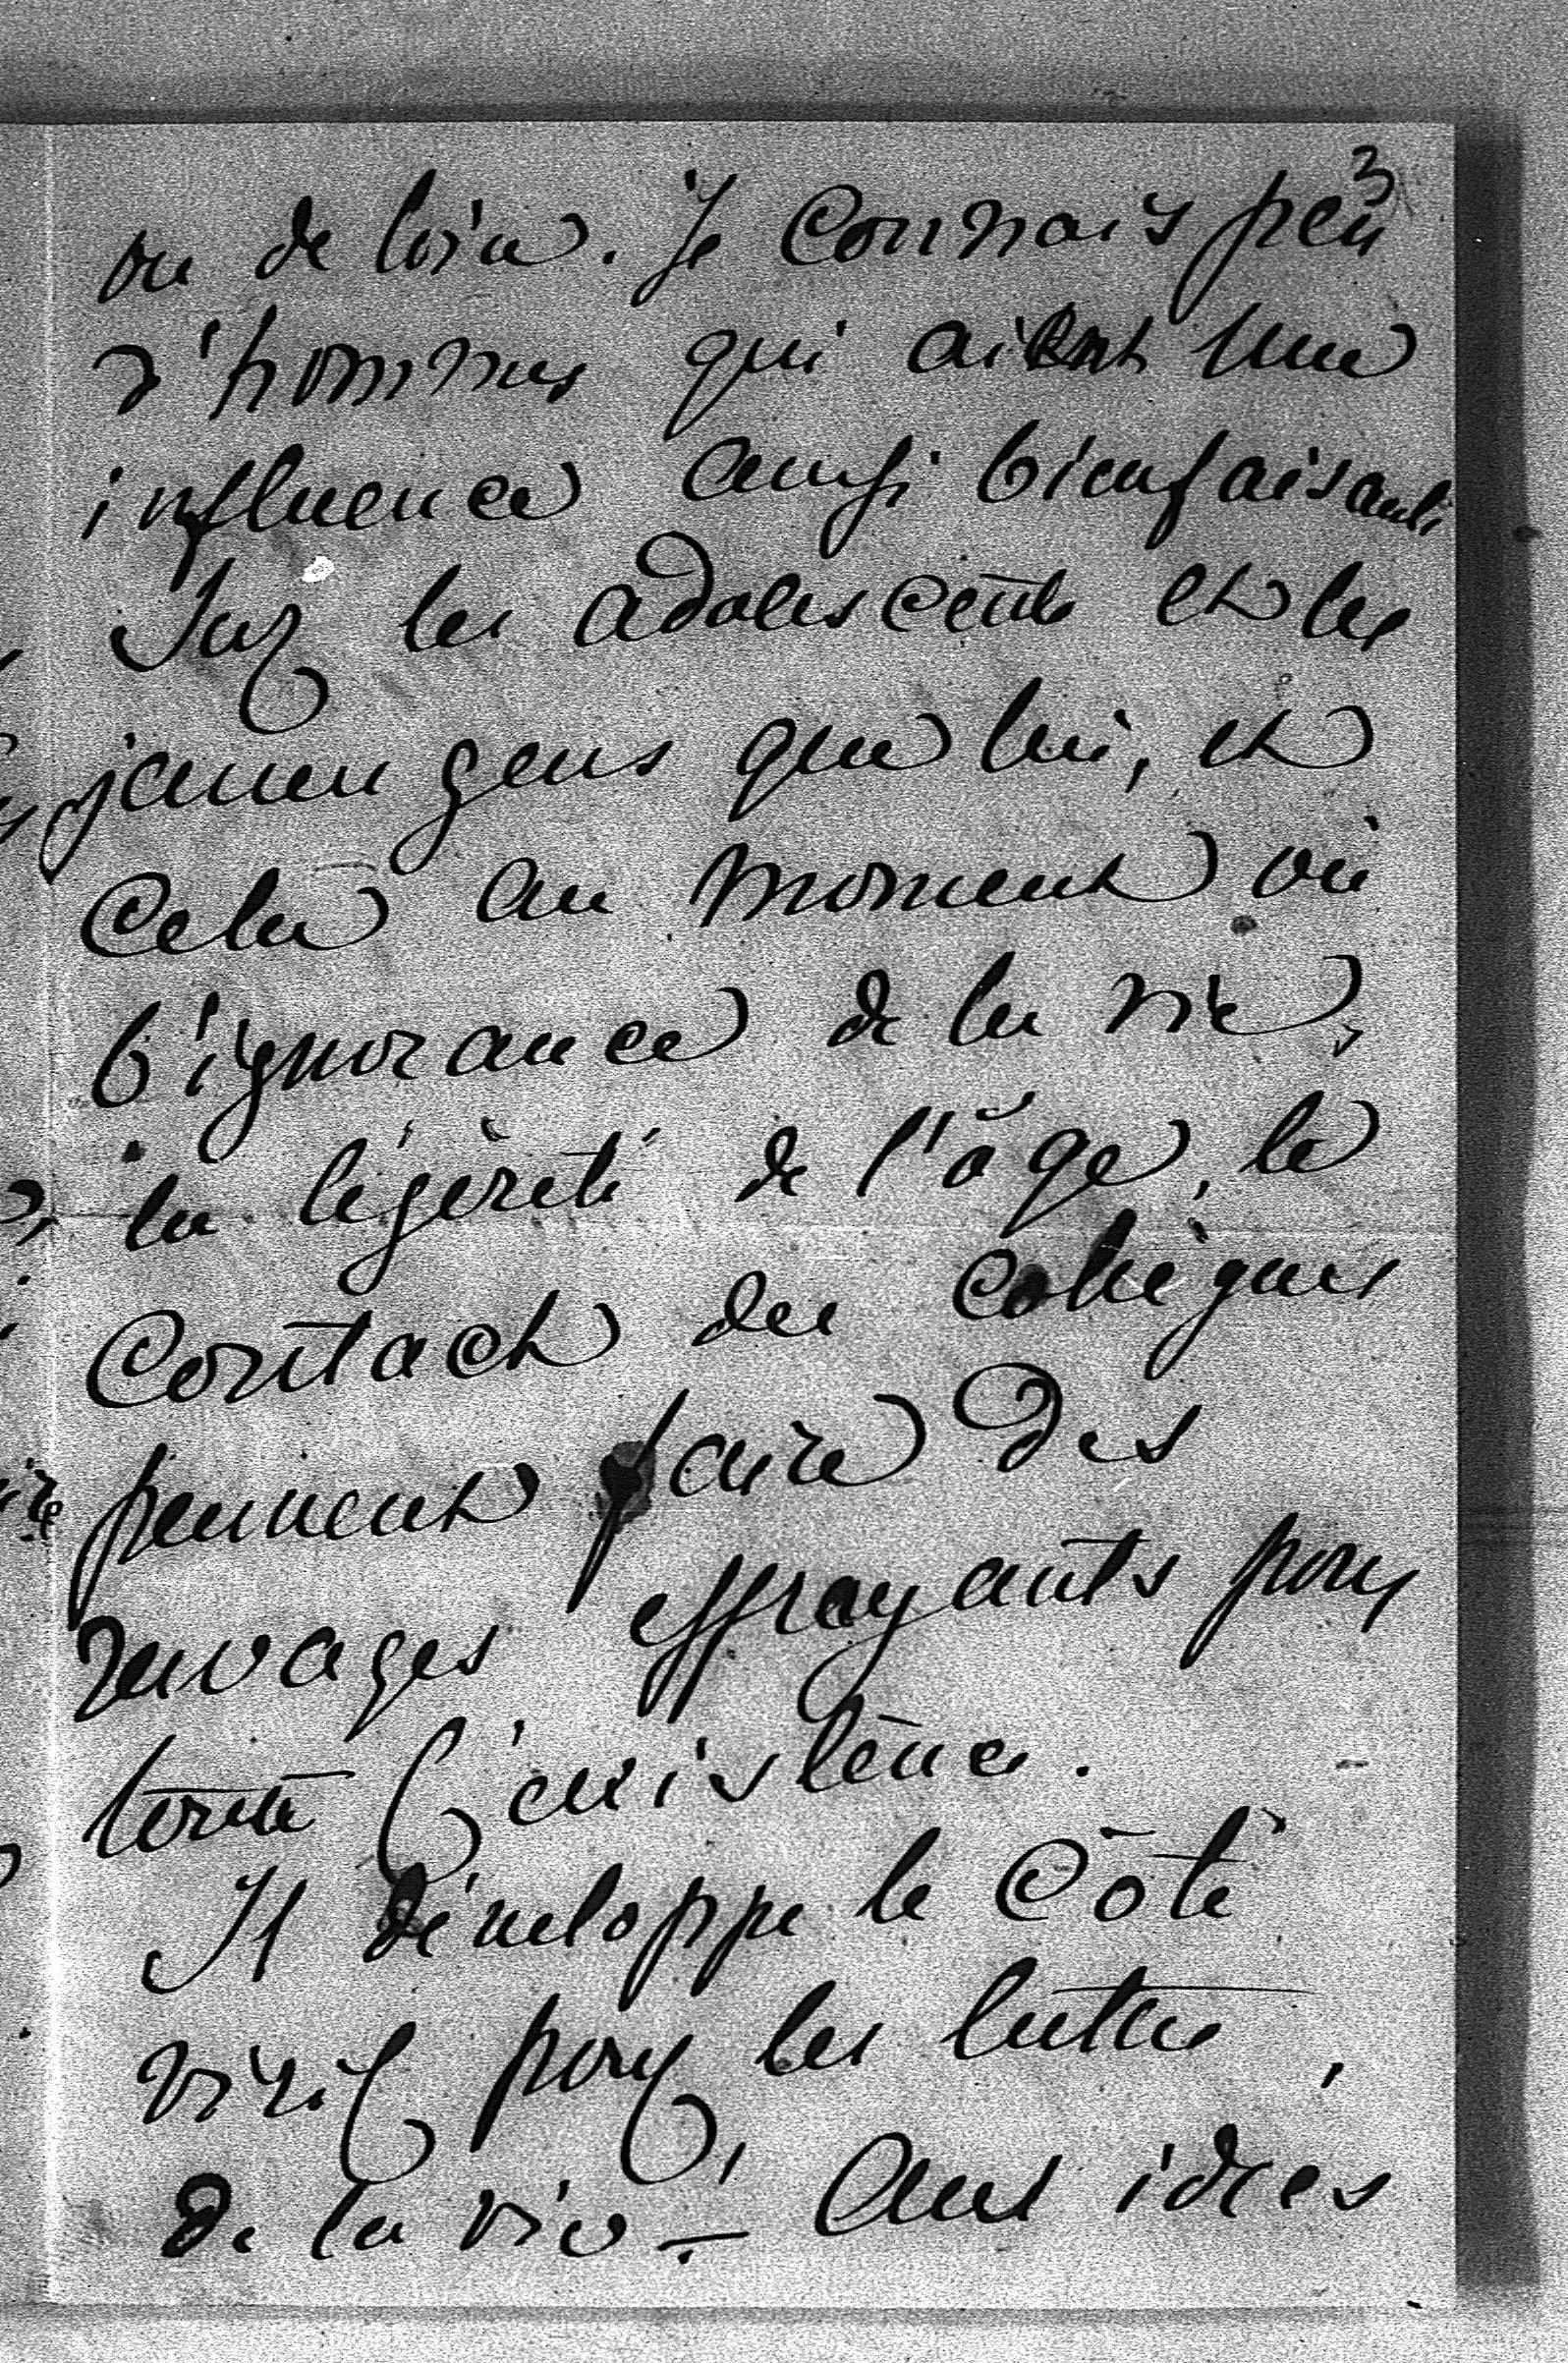 3
ou de loin. Je connais peu
d'hommes qui aient une
influence aussi bienfaisante
sur les adolescents et les
jeunes gens que lui, et
cela au moment où
l'ignorance de la vie,
la légèreté de l'âge, le
contact des collègues
peuvent faire des
ravages effrayants pour
toute l'existence.
Il développe le côté
viril pour les luttes,
de la vie. — Aux idées